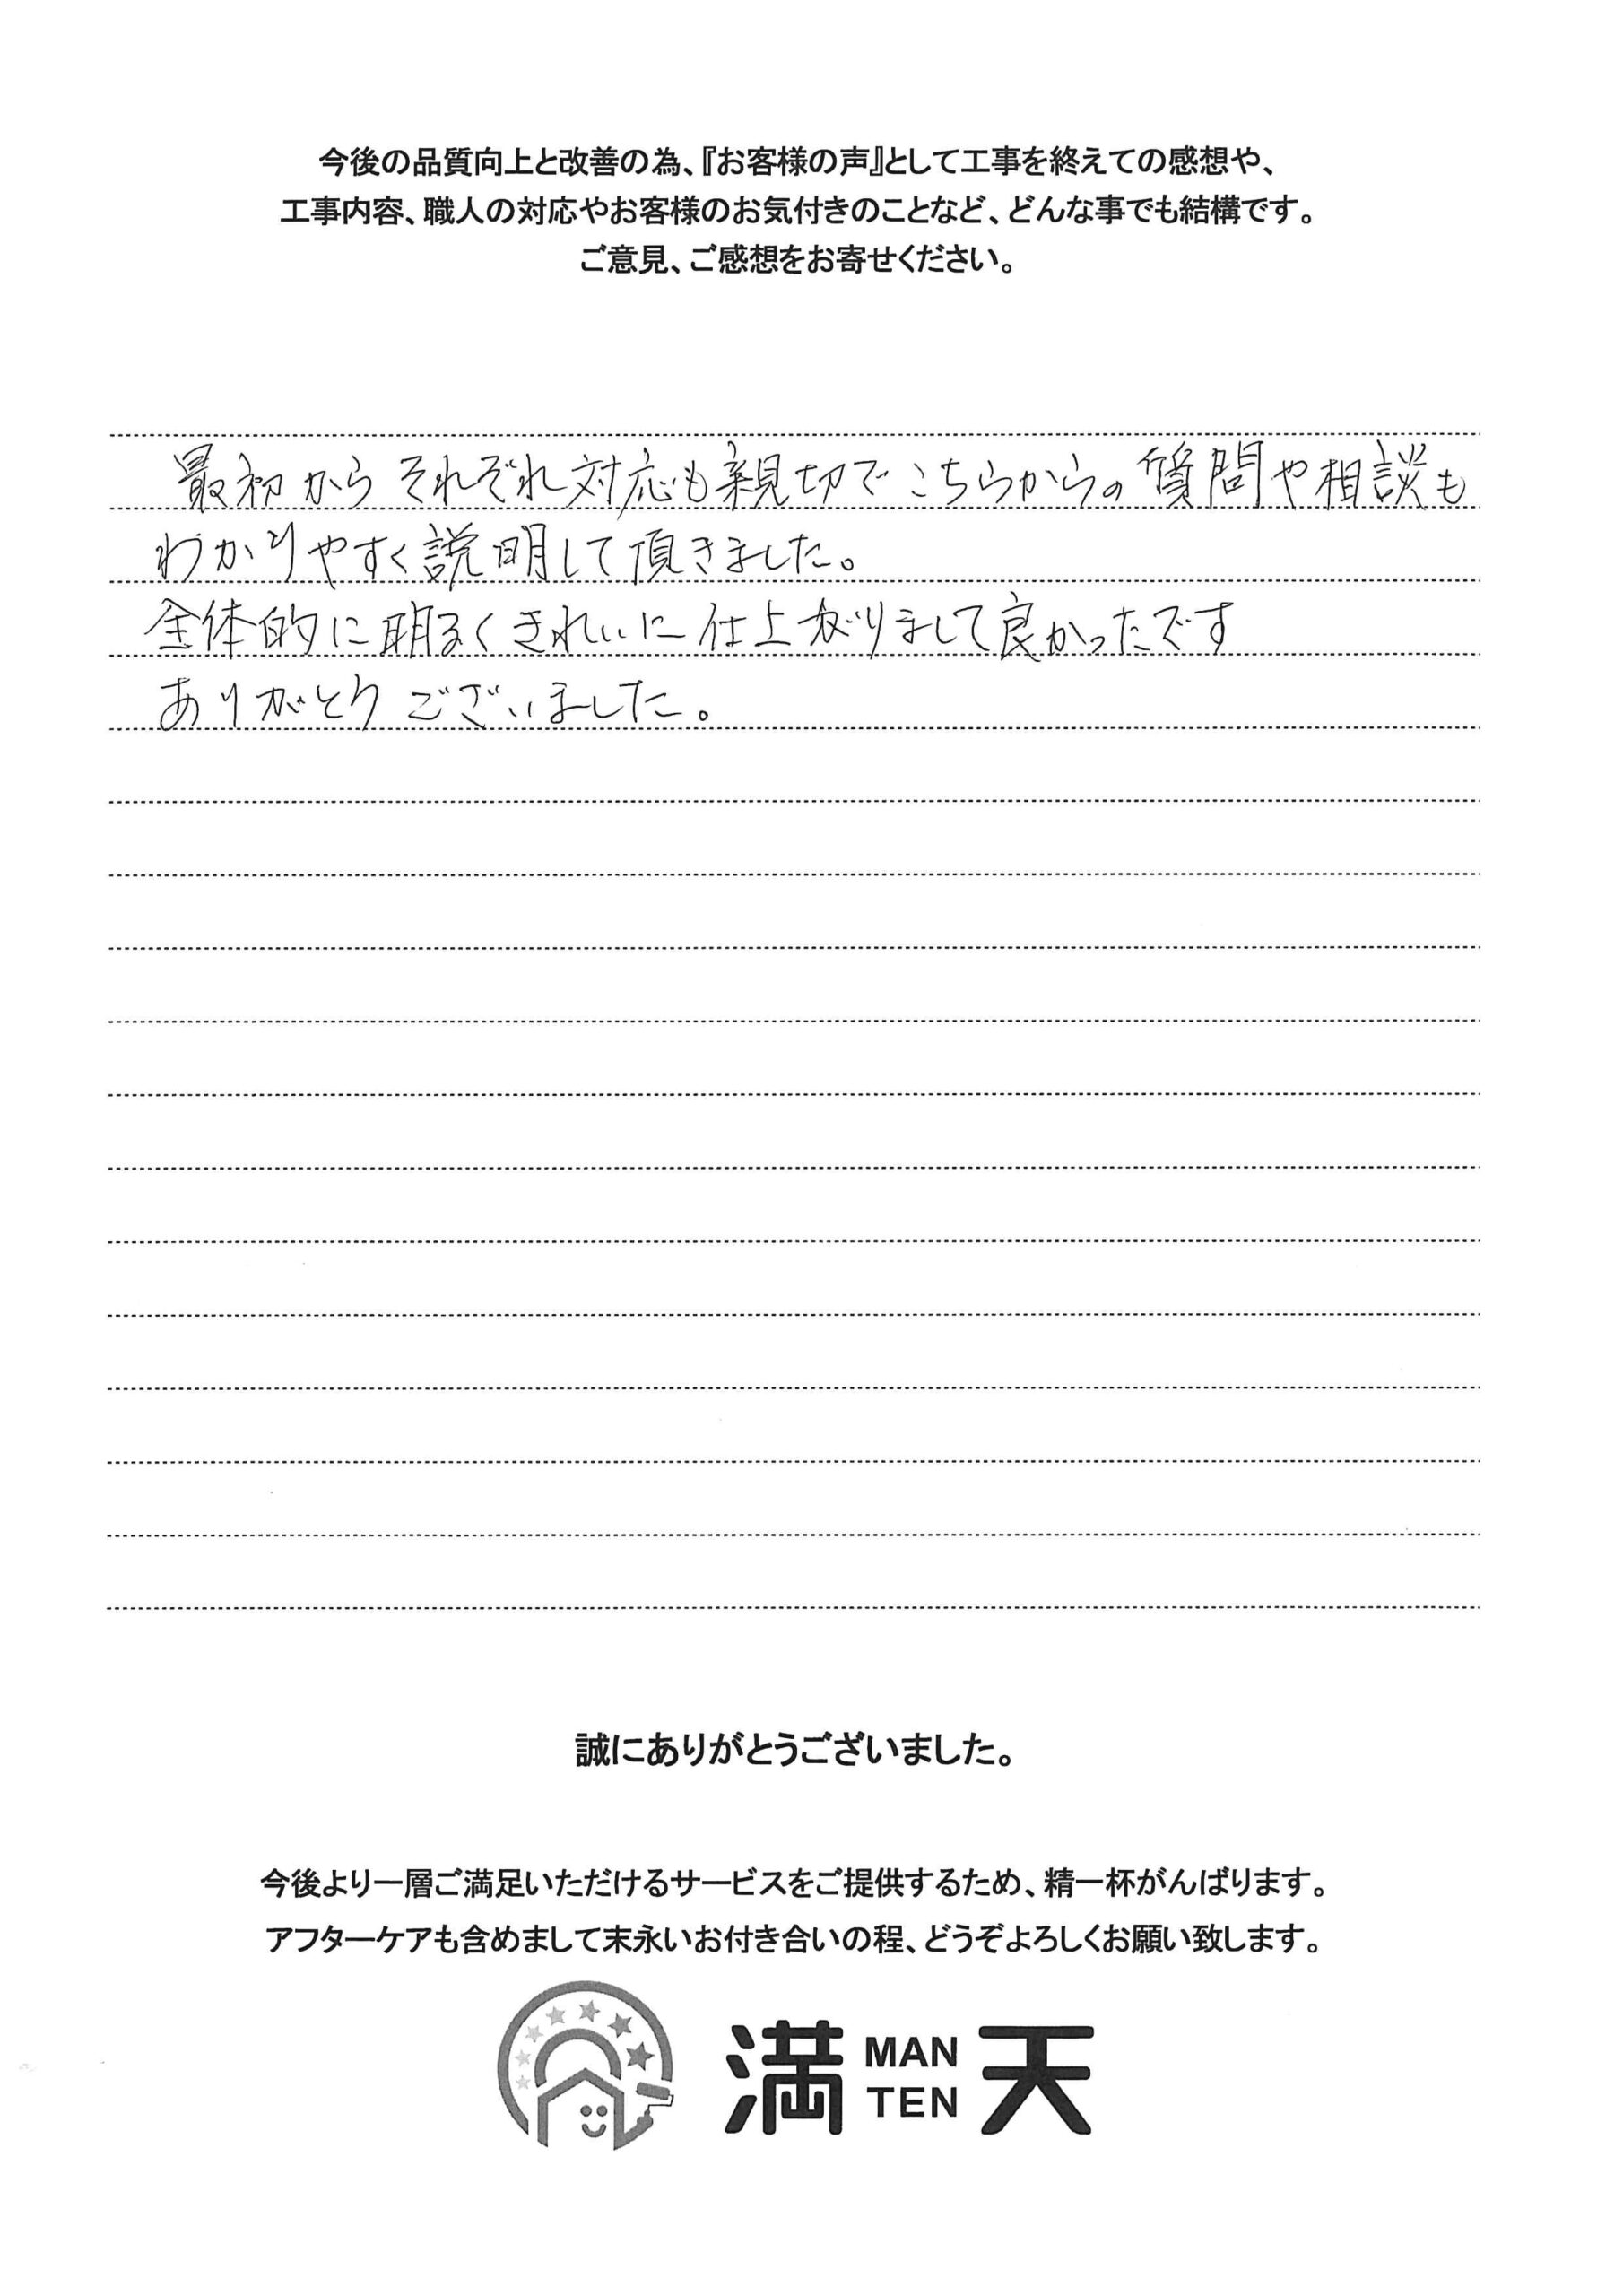 今後の品質向上と改善の為、『お客様の声』として工事を終えての感想や、
工事内容、職人の対応やお客様のお気付きのことなど、どんな事でも結構です。
ご意見、ご感想をお寄せください。
最初からそれぞれ対応も親切でこちらからの質問や相談も
わかりやすく説明して頂きました。
全体的に明るくきれいに仕上がりまして良かったです
ありがとうございました。
誠にありがとうございました。
今後より一層ご満足いただけるサービスをご提供するため、精一杯がんばります。
アフターケアも含めまして末永いお付き合いの程、どうぞよろしくお願い致します。
満 MAN TEN 天